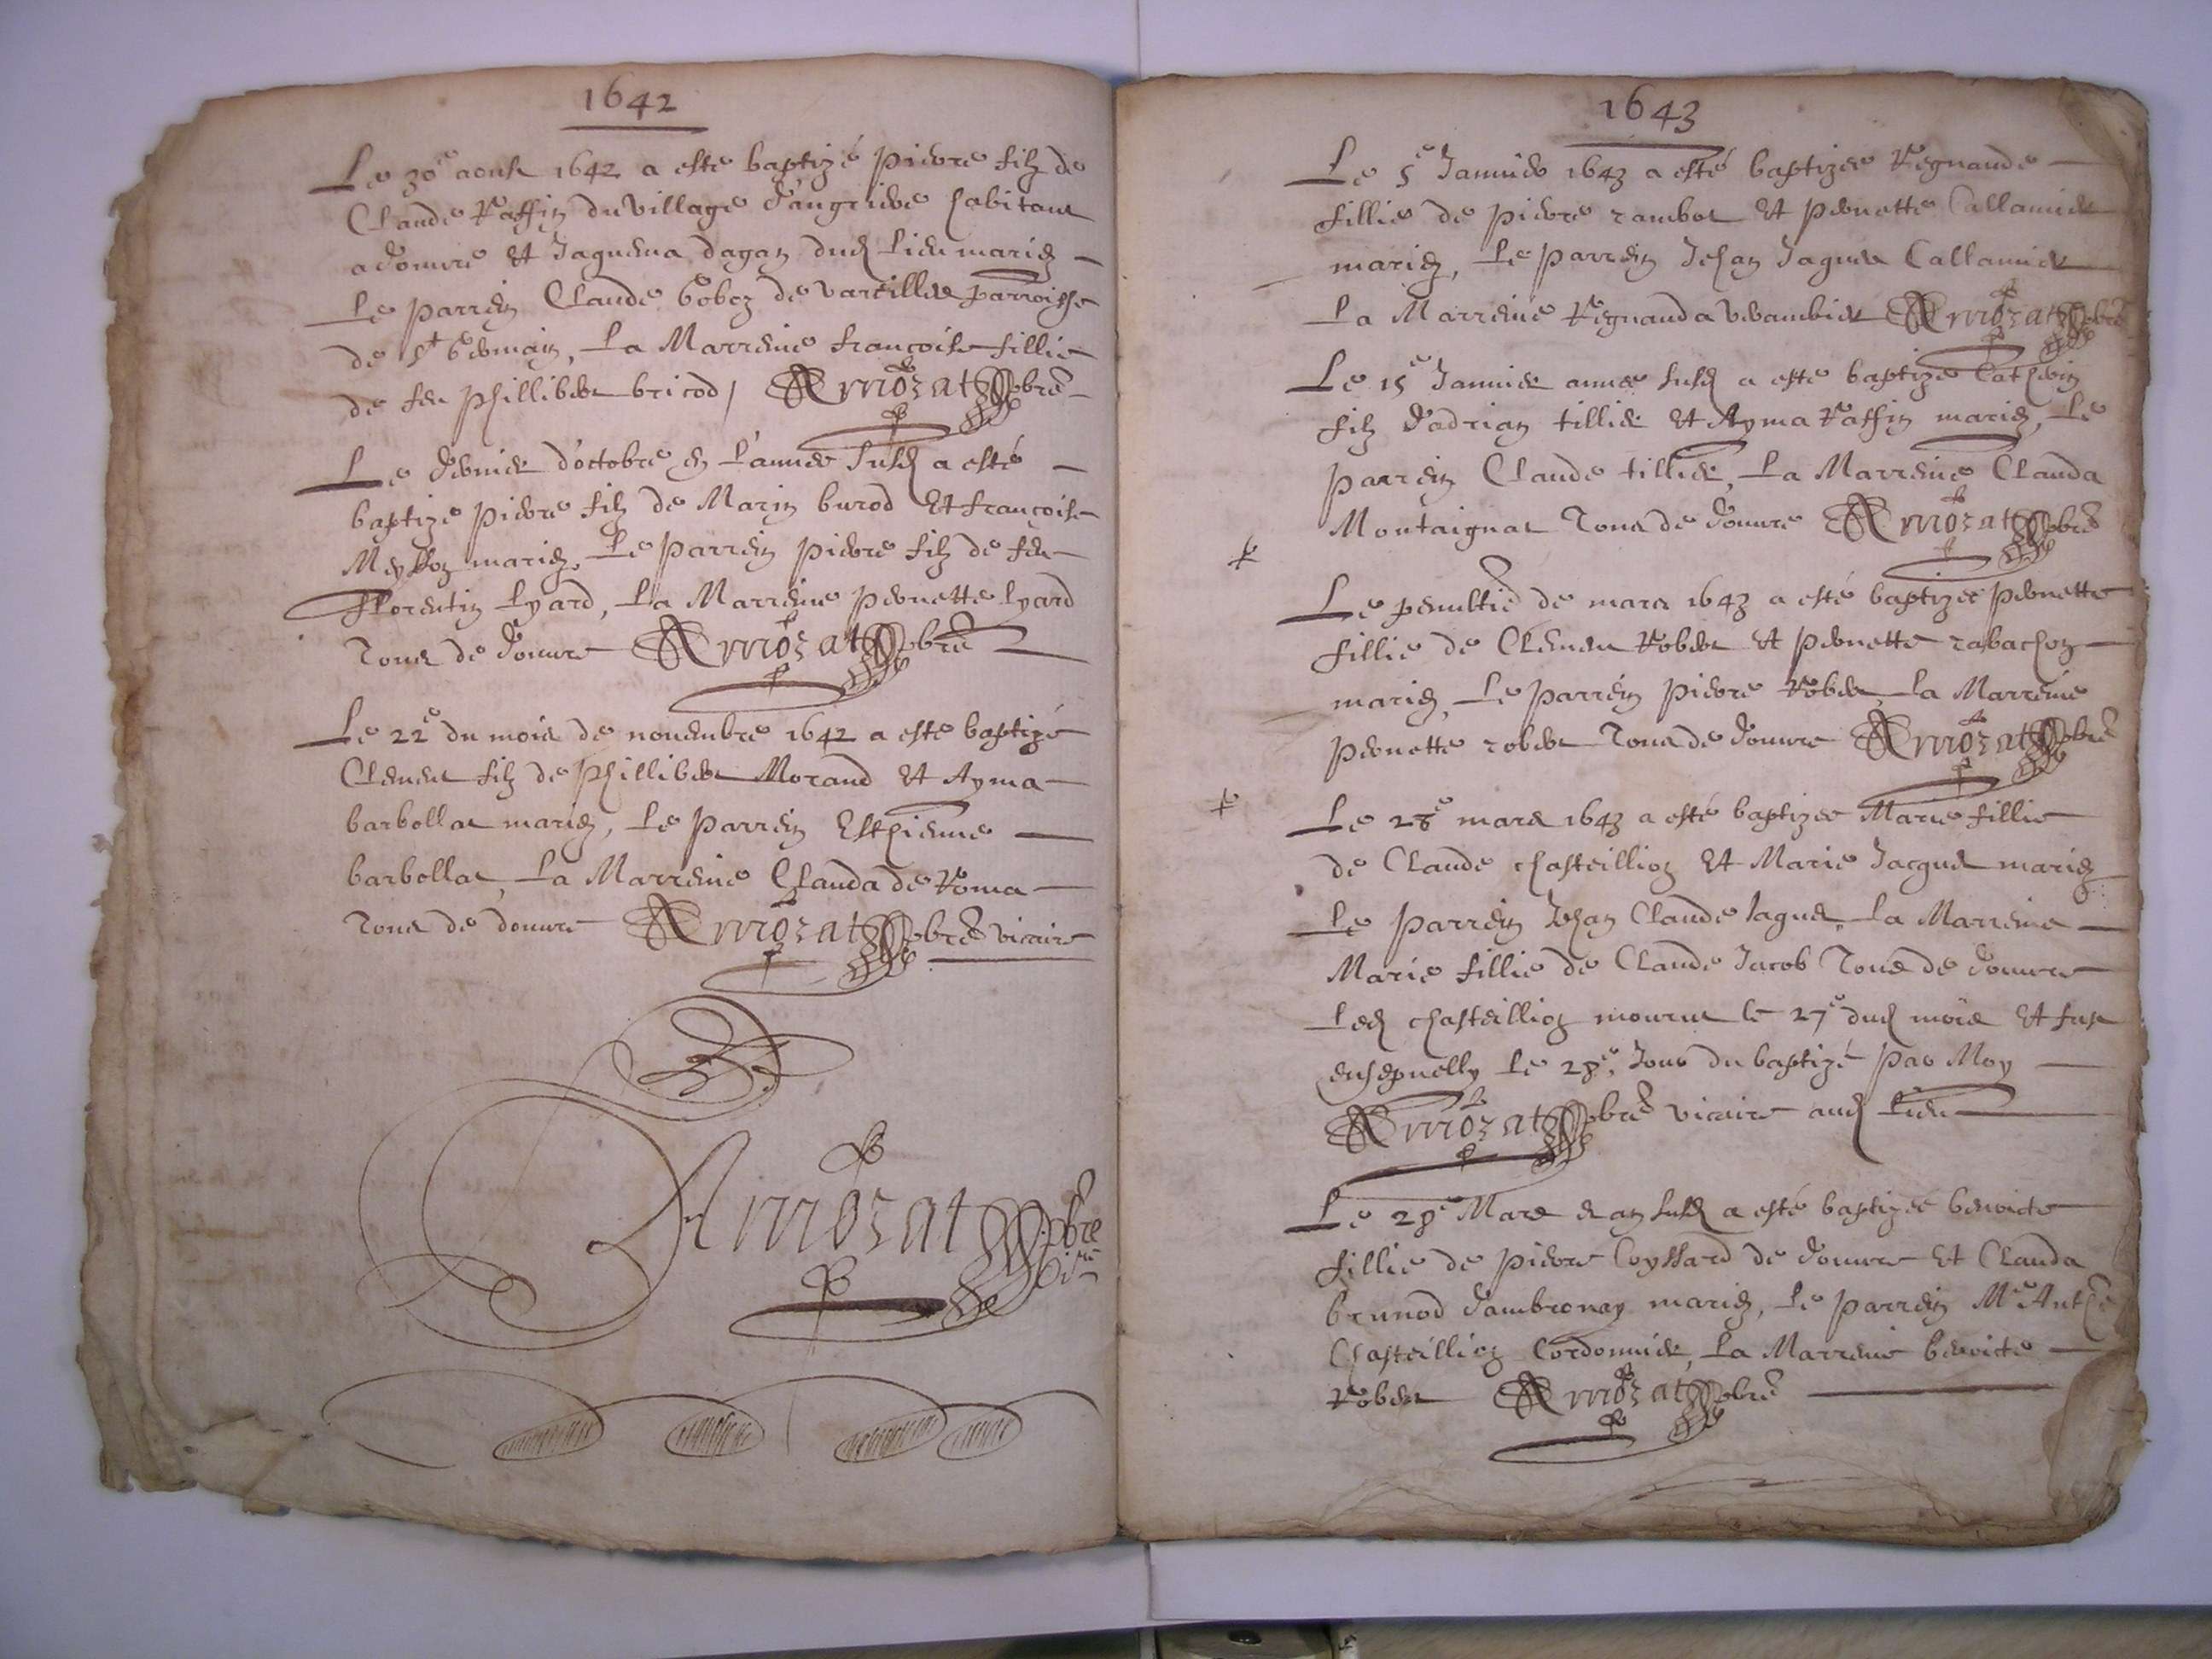 1642
Le 30e aoust 1642 a este baptizé pierre filz de
Claude Raffin du village d'angrieres habitant
a douvre et Jaquema dagan dud lieu mariez
Le parrein Claude Goboz de vareilles parroisse
de St Germain, La Marreine francoise fillie
de feu phillibert bricod, Armozat pbre
Le dernier d'octobre en l'annee susd a esté
baptize pierre filz de Marin burod et francoise
mariez, Le parrein pierre filz de feu
florentin lyard, La Marreine pernette lyard
Tous de douvre Armozat pbre
Le 22e du mois de novembre 1642 a este baptizé
Clement filz de phillibert Morand et Ayma
barbollat mariez, Le parrein Esthienne
barbollat, La Marreine Clauda de Roma
Tous de douvre Armozat pbre vicaire
Armozat pbre
1643
Le 5e Janvier 1643 a esté baptizee Regnaude
fillie de pierre rambot et pernette Callamier
mariez, Le parrein Jehan Jaques Callamier
La Marreine Regnauda Armozat pbre
Le 15e Janvier annee susd a este baptizé Catherin
filz d'adrian tillier et Ayma Raffin mariez, Le
parrein Claude tillier, La Marreine Clauda
Montaignat Tous de douvre Armozat pbre
Le penultie de mars 1643 a esté baptizee pernette
fillie de Clement Robert et pernette rabachon
mariez, Le parrein pierre Robert, La Marreine
pernette robert Tous de douvre Armozat pbre
Le 28e mars 1643 a esté baptizee Marie fillie
de Claude chasteillion et Marie Jacques mariez
Le parrein Jehan Claude Jaques, La Marreine
Marie fillie de Claude Jacob Tous de douvre
Led chasteillion mourut le 27e dud mois et fust
ensepvelly le 28e, Jour du baptizé par Moy
Armozat pbre vicaire aud lieu
Le 28e Mars en an susd a esté baptizee benoicte
fillie de pierre Coyssard de douvre et Clauda
brunod d'ambronay mariez, Le parrein Me Anthe
Chasteillion Cordonnier, La Marreine benoicte
Robert Armozat pbre